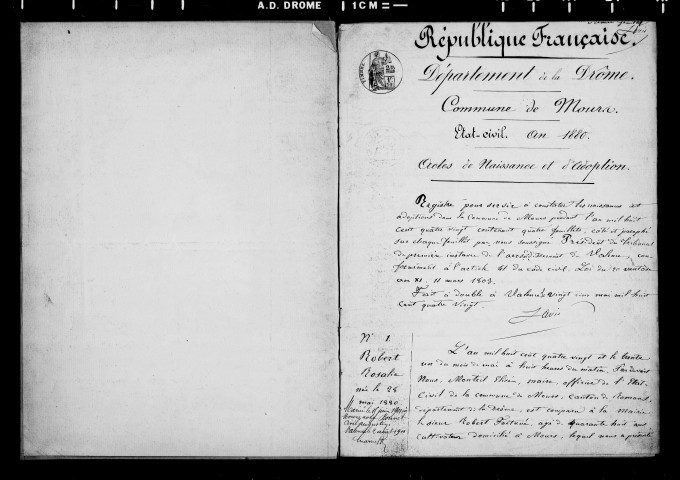 A.D. DROME 1CM =
République Française.
Département de la Drôme.
Commune de Mours.
Etat-civil. An 1880.
Actes de Naissance et d'Adoption.
Registre pour servir à constater les naissances et
adoptions dans la Commune de Mours pendant l'an mil huit
cent quatre vingt contenant quatre feuillets, coté et paraphé
sur chaque feuillet par nous soussigné Président du Tribunal
de première instance de l'arrondissement de Valence, con-
formément à l'article 41 du code civil. Loi du 20 ventôse
an XI. 11 mars 1803.
Fait à double à Valence vingt cinq mai mil huit
cent quatre vingt.
N° 1
Robert
Rosalie
née le 28
mai 1880.
L'an mil huit cent quatre vingt et le trente
un du mois de mai à huit heures du matin, Par devant
Nous, Monteil maire, officier de l'Etat
Civil de la commune de Mours, canton de Romans,
département de la Drôme, est comparu à la mairie
le sieur Robert agé de quarante huit ans
cultivateur domicilié à Mours, lequel nous a présenté